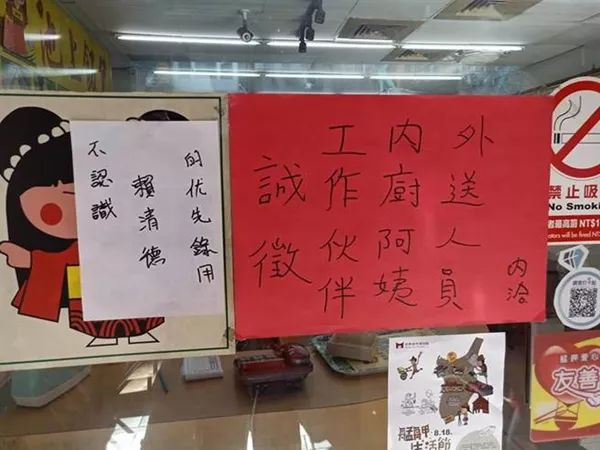 不認識
賴清德
的优先錄用
誠徵
工作伙伴
內廚阿姨
外送人員
內洽
禁止吸
No Smoki
者最高罰 NT$1
8.18
生活節
友善